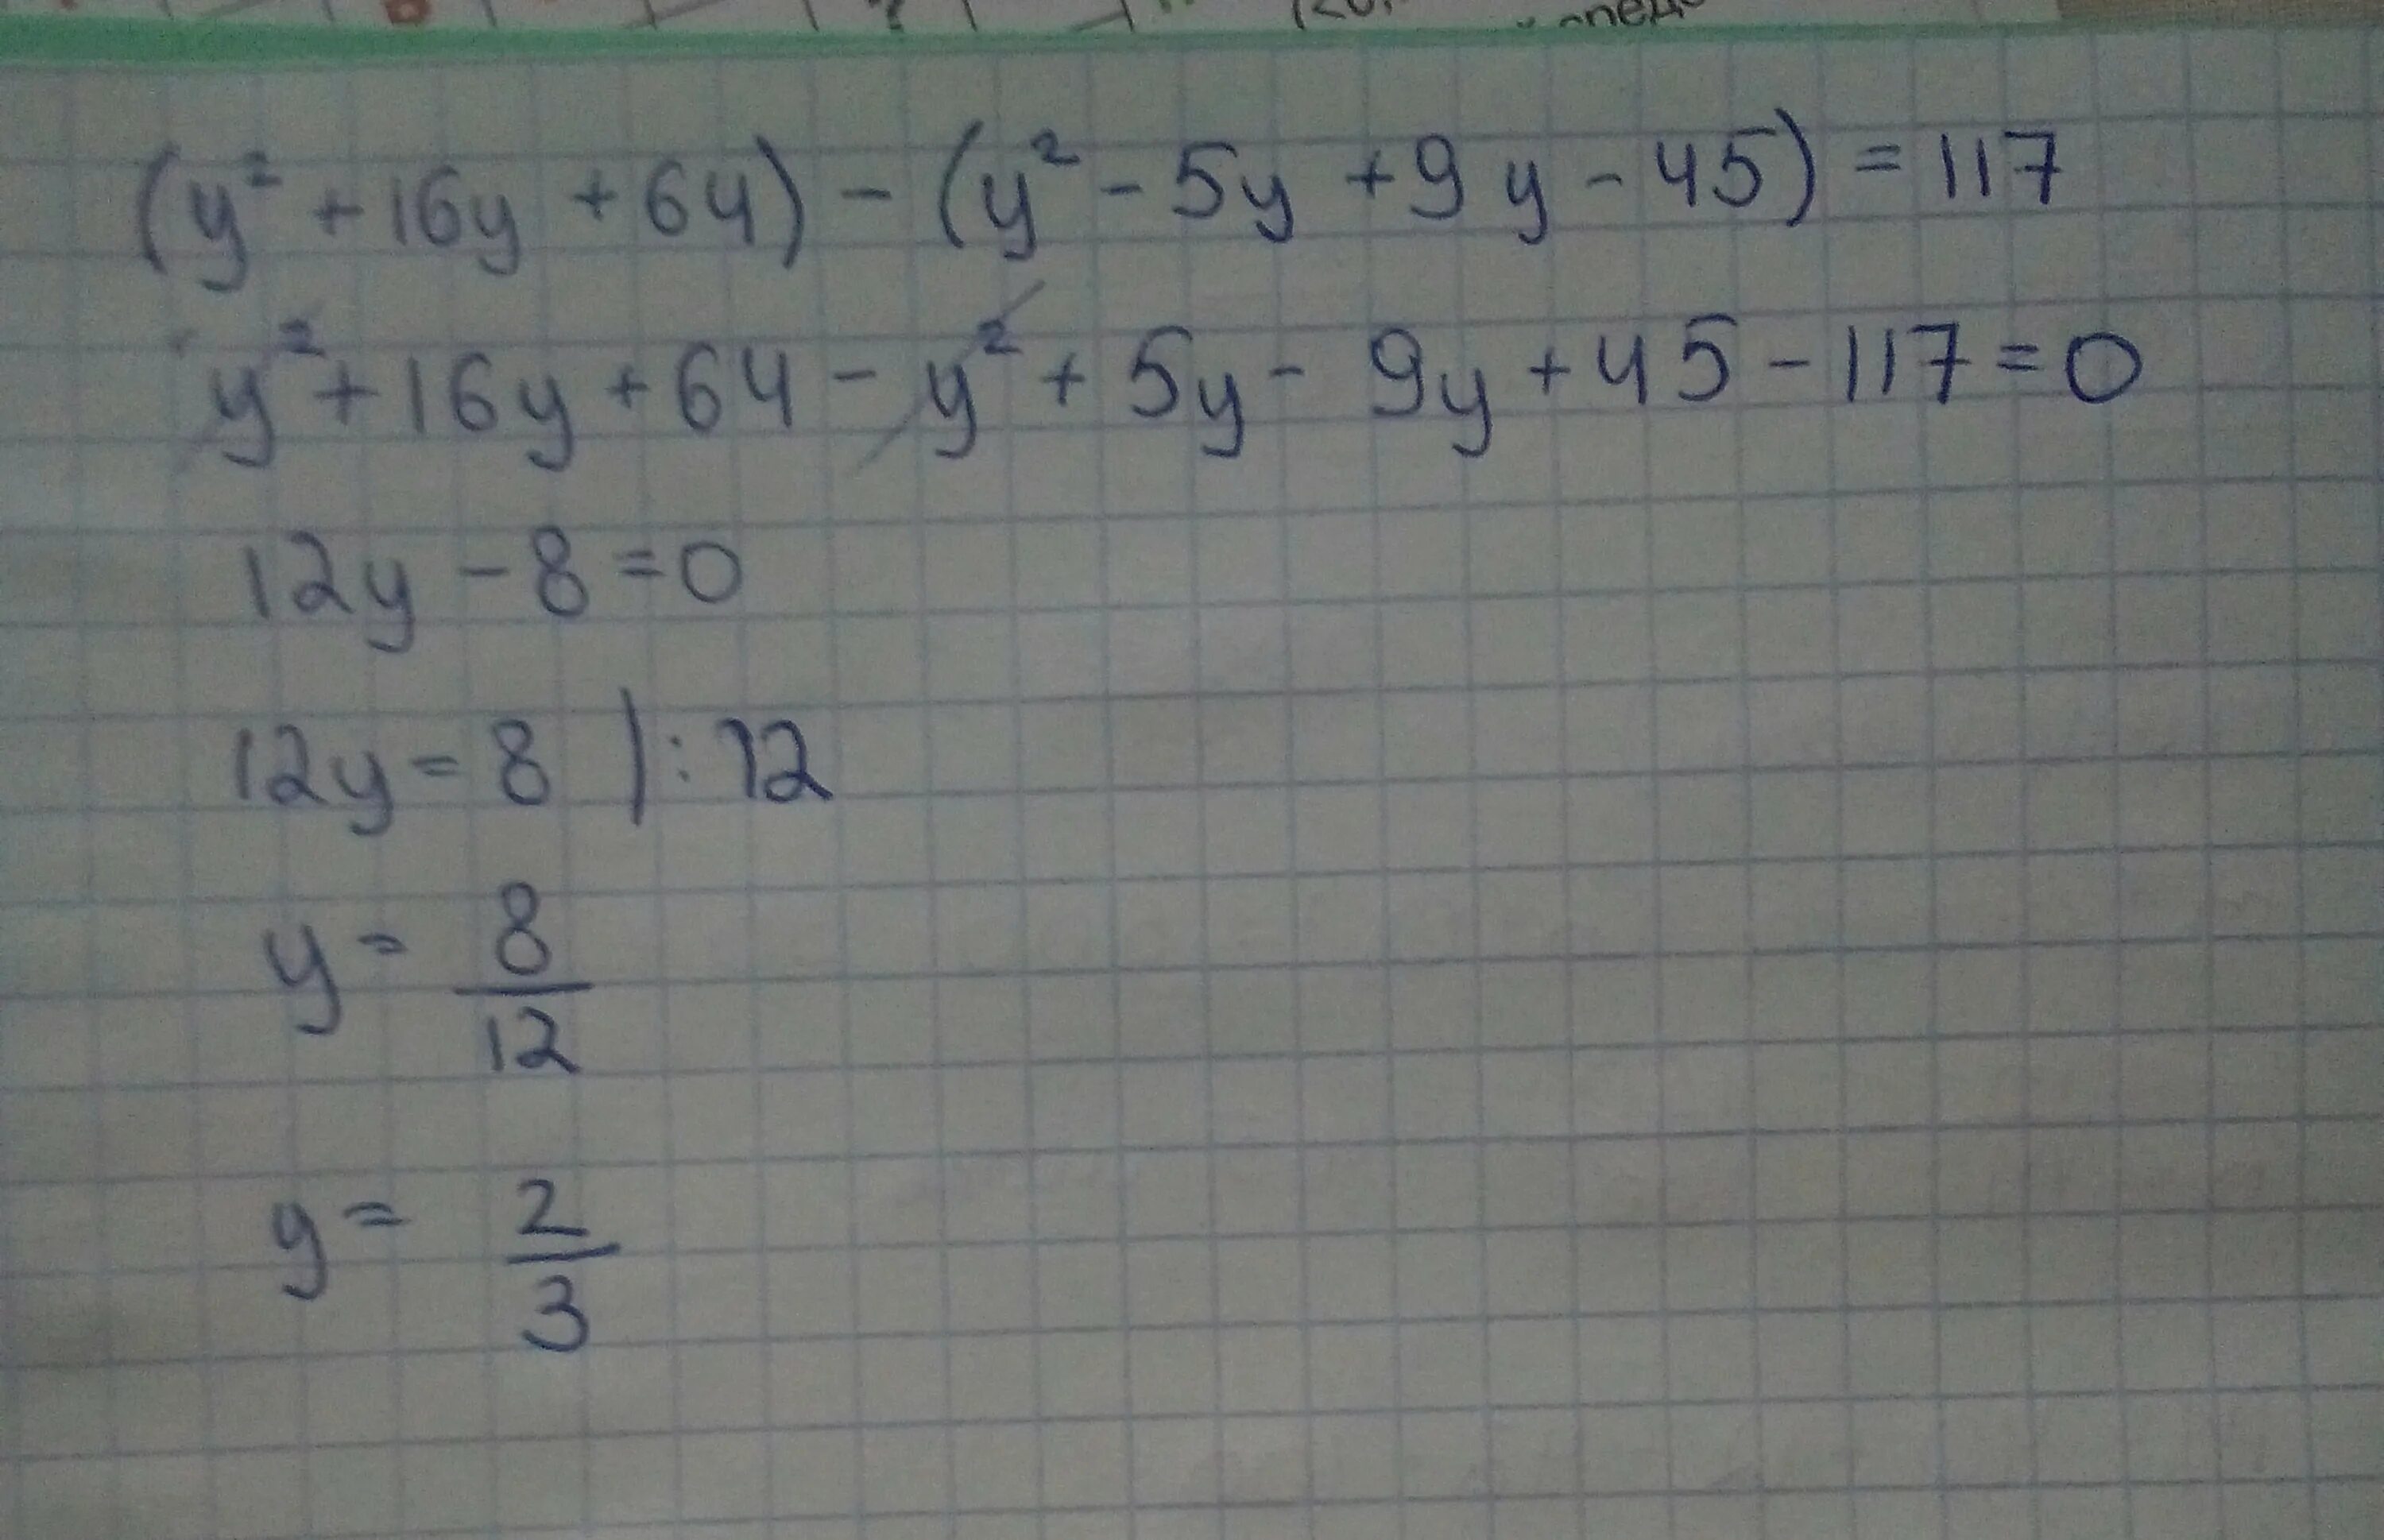 (y² + 16y + 64) - (y² - 5y + 9y - 45) = 117
y² + 16y + 64 - y² + 5y - 9y + 45 - 117 = 0
12y - 8 = 0
12y = 8 | : 12
y = 8/12
y = 2/3